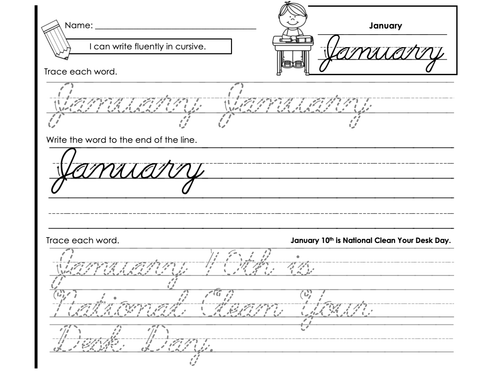 Name:
I can write fluently in cursive.
January
January
Trace each word.
January January
Write the word to the end of the line.
January
Trace each word.
January 10th is National Clean Your Desk Day.
January 10th is
National Clean Your
Desk Day.